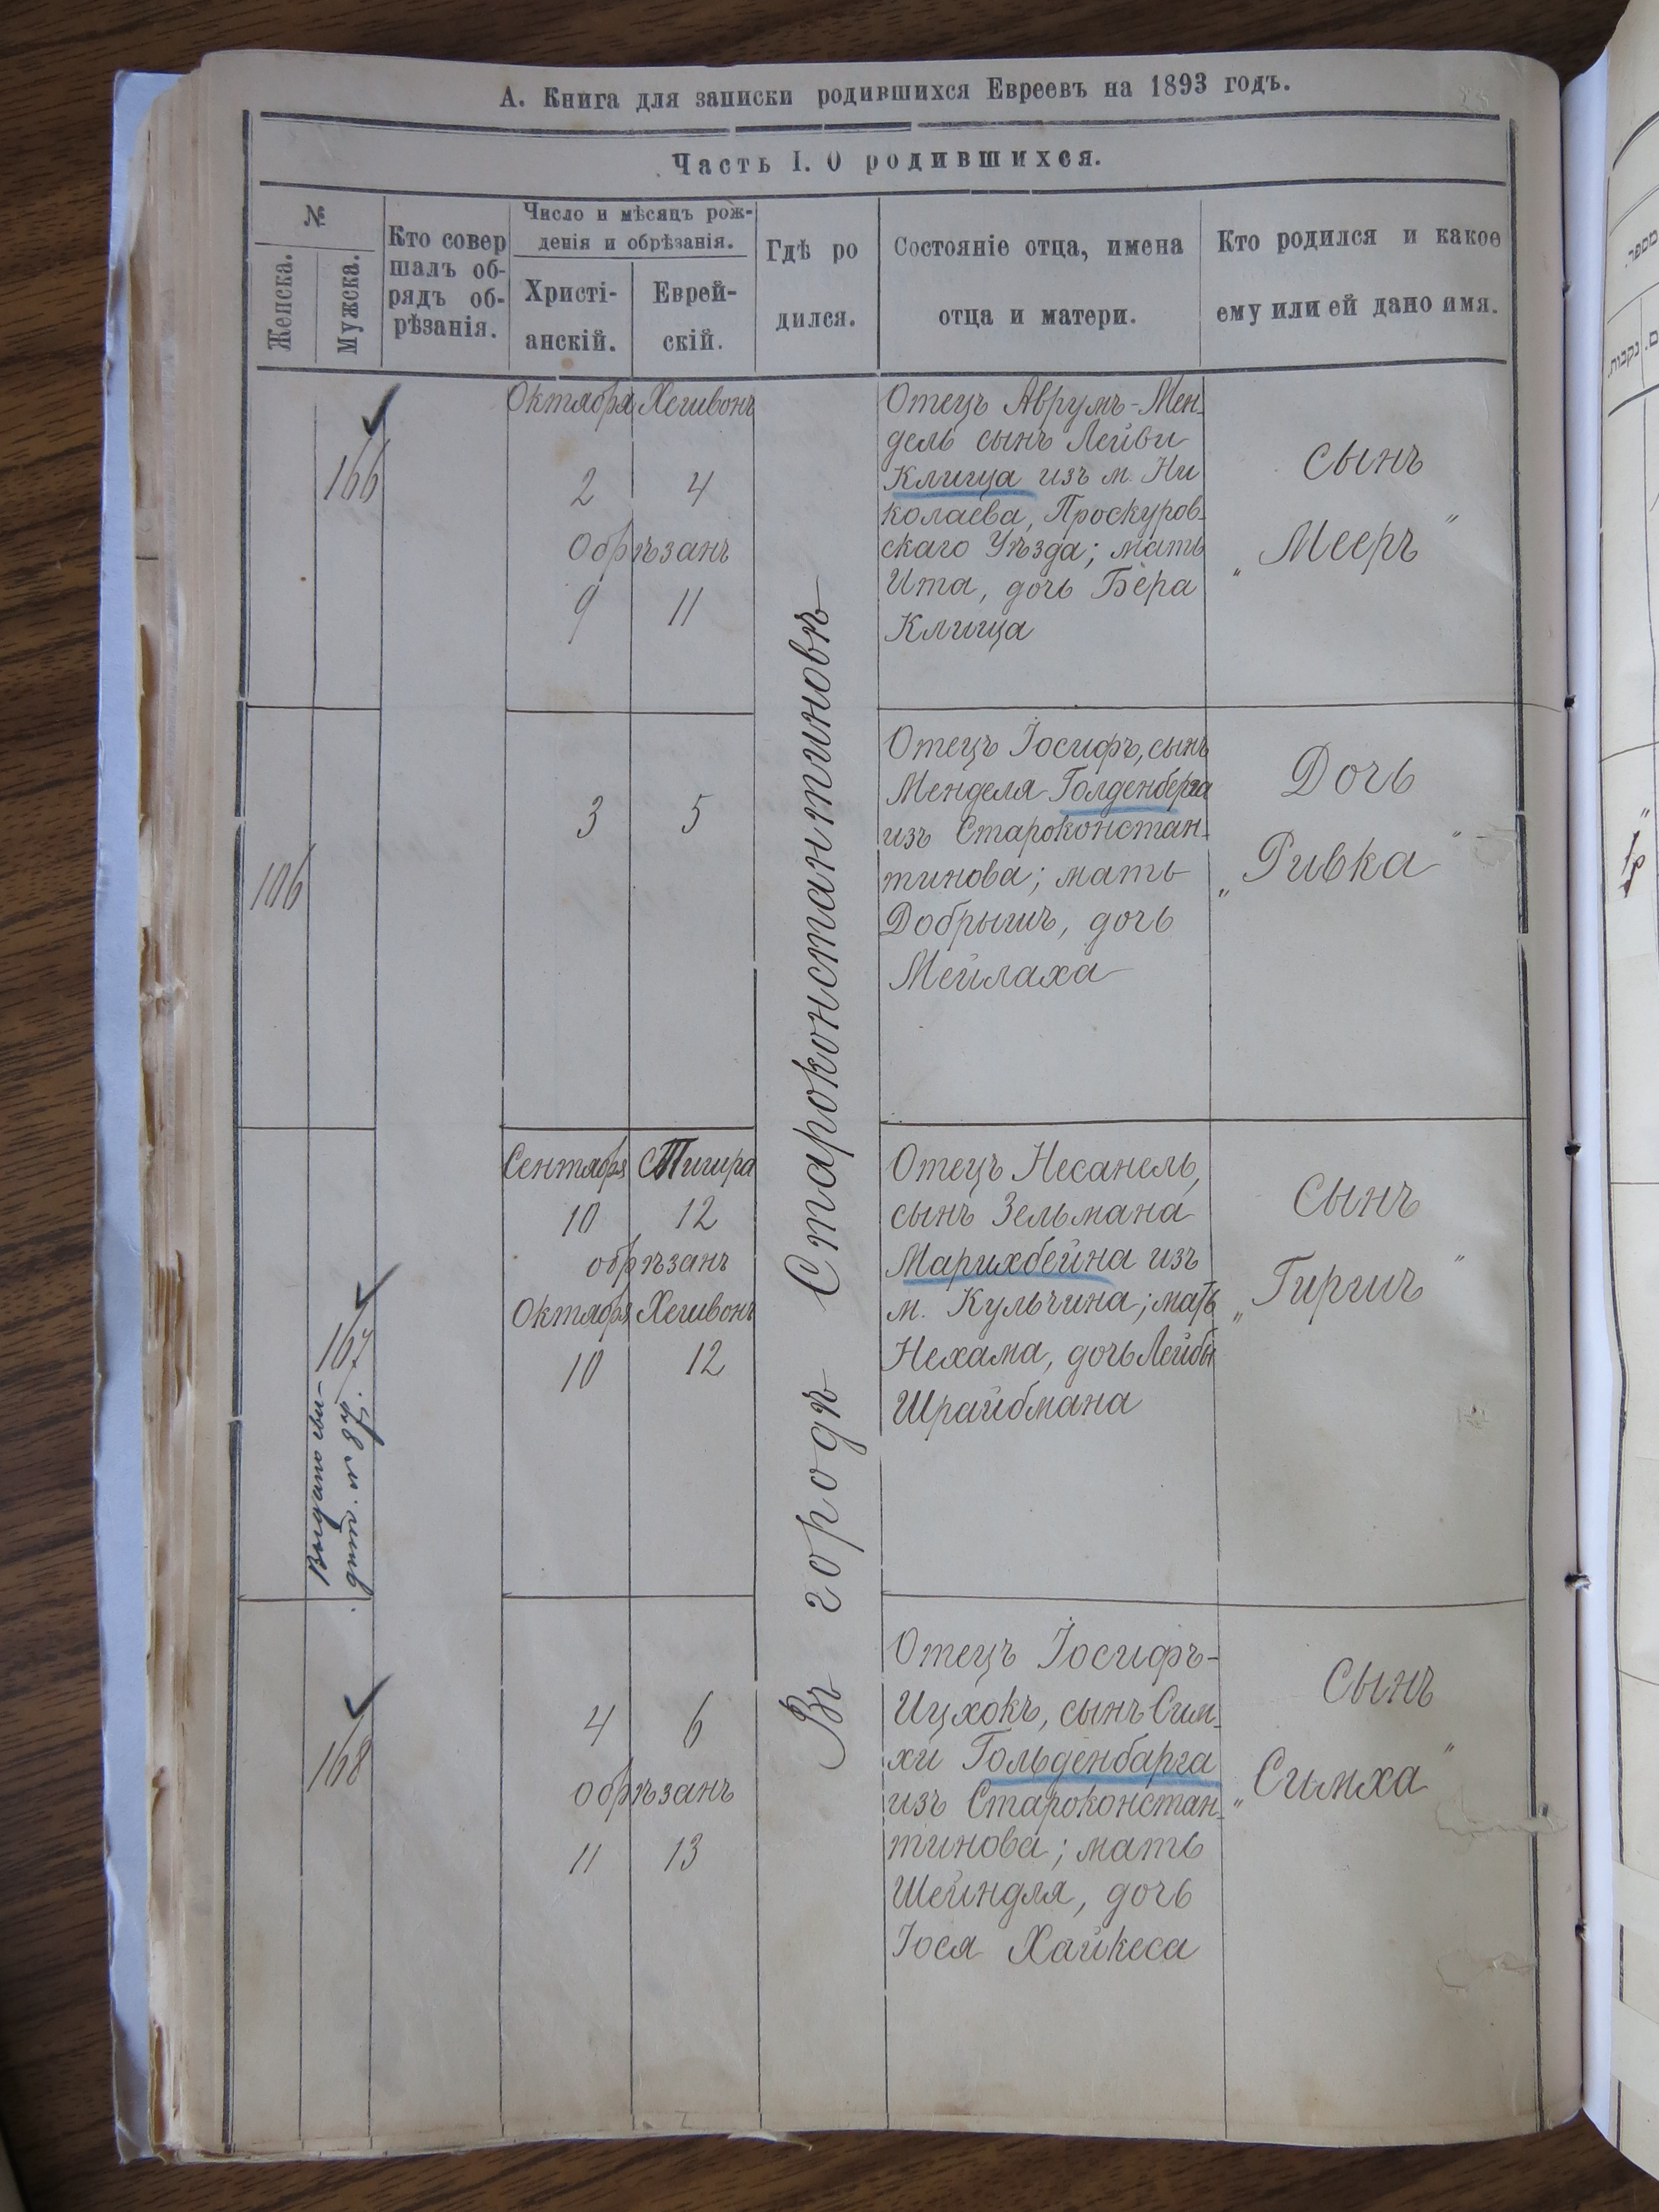 А. Книга для записки родившихся Евреевъ на 1893 годъ.
Часть I. О родившихся.
№
Женска.
Мужска.
Кто совер
шалъ об-
рядъ об-
рѣзанія.
Число и мѣсяцъ рож-
денія и обрѣзанія.
Христі-
анскій.
Еврей-
скій.
Гдѣ ро
дился.
Состояніе отца, имена
отца и матери.
Кто родился и какое
ему или ей дано имя.
166
Октября Хешвонъ
2 4
Обрѣзанъ
9 11
Отецъ Аврумъ-Мен-
дель сынъ Лейви
Клища изъ м. Ни
колаева, Проскуров-
скаго Уѣзда; мать
Ита, дочь Бера
Клища
Сынъ
„Мееръ"
В городѣ Староконстантиновѣ
106
3 5
Отецъ Іосифъ, сынъ
Менделя Голденберга
изъ Староконстан-
тинова; мать
Добрышъ, дочь
Мейлаха
Дочь
„Ривка"
167
Выдано сви-
Сентября Тишра
10 12
обрѣзанъ
Октября Хешвонъ
10 12
Отецъ Несанель,
сынъ Зельмана
Марихбейна изъ
м. Кульчина; мать
Нехама, дочь Лейбы
Шрайбмана
Сынъ
„Гиршъ"
168
4 6
обрѣзанъ
11 13
Отецъ Іосифъ-
Ицхокъ, сынъ Сим-
хи Гольденбарга
изъ Староконстан-
тинова; мать
Шейндля, дочь
Іося Хайкеса
Сынъ
„Симха"